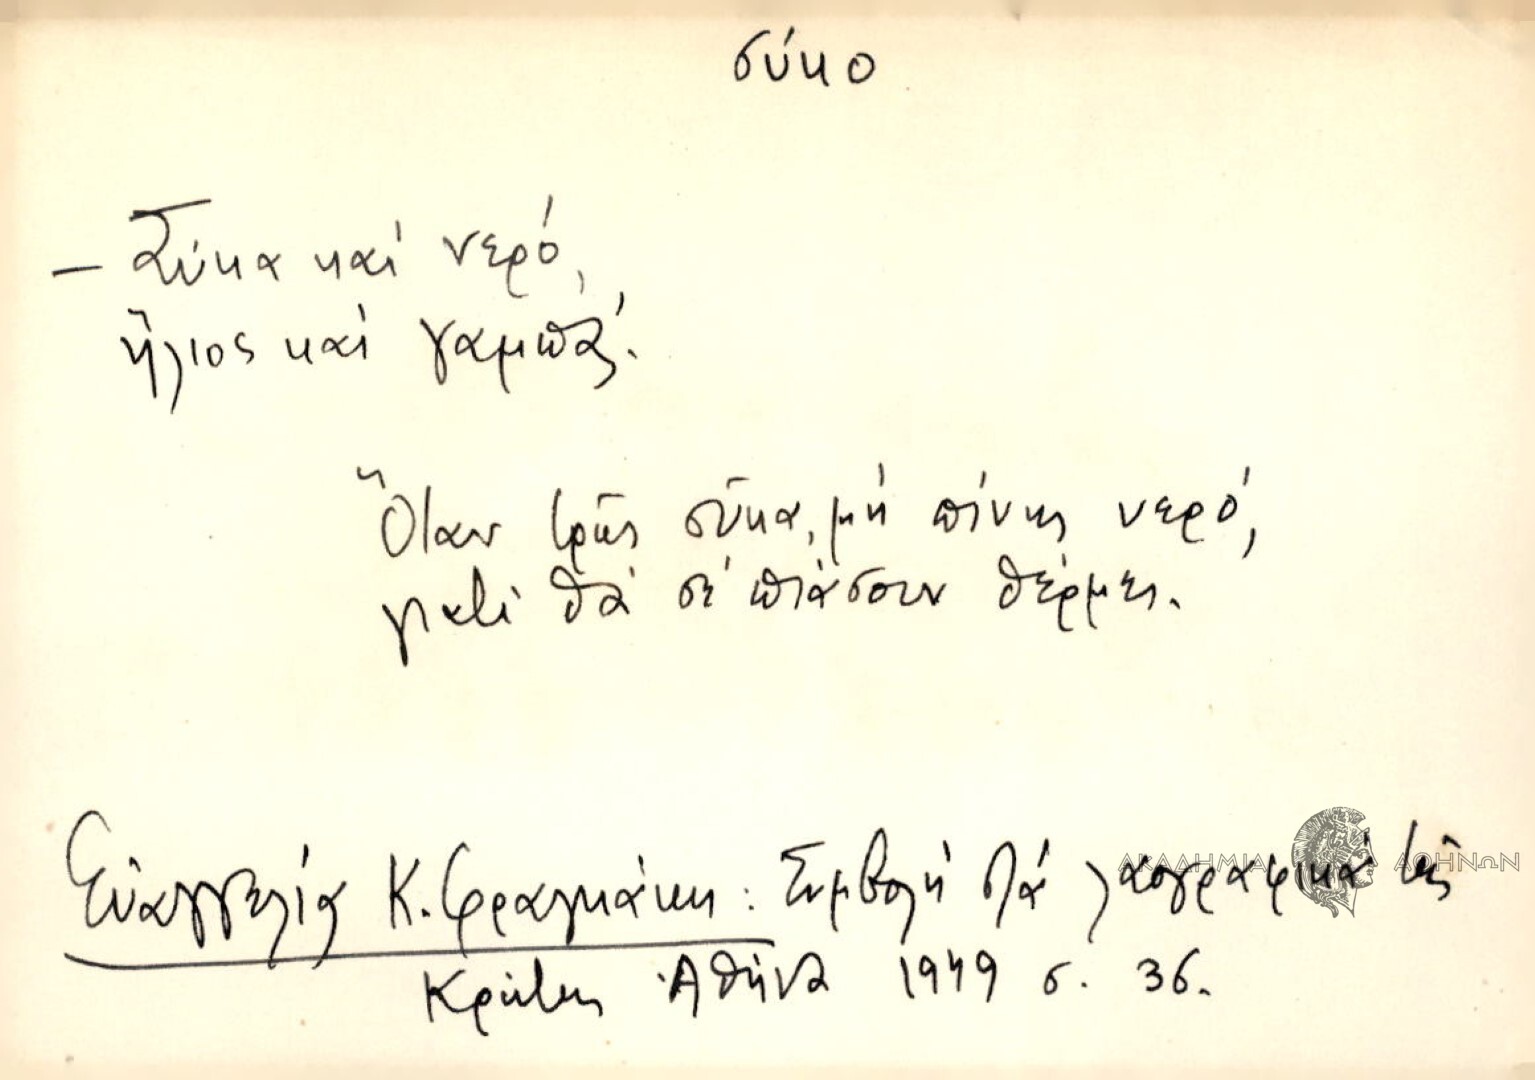 σύκο
— Σύκα καί νερό,
ἥλιος καί γαμπάς.
Ὅταν τρῶς σῦκα, μή πίνῃς νερό,
γιατί θά σέ πιάσουν θέρμες.
Εὐαγγελίας Κ. Φραγκάκη : Συμβολή στά λαογραφικά τῆς
Κρήτης Ἀθήνα 1949 σ. 36.
ΑΚΑΔΗΜΙΑ ΑΘΗΝΩΝ